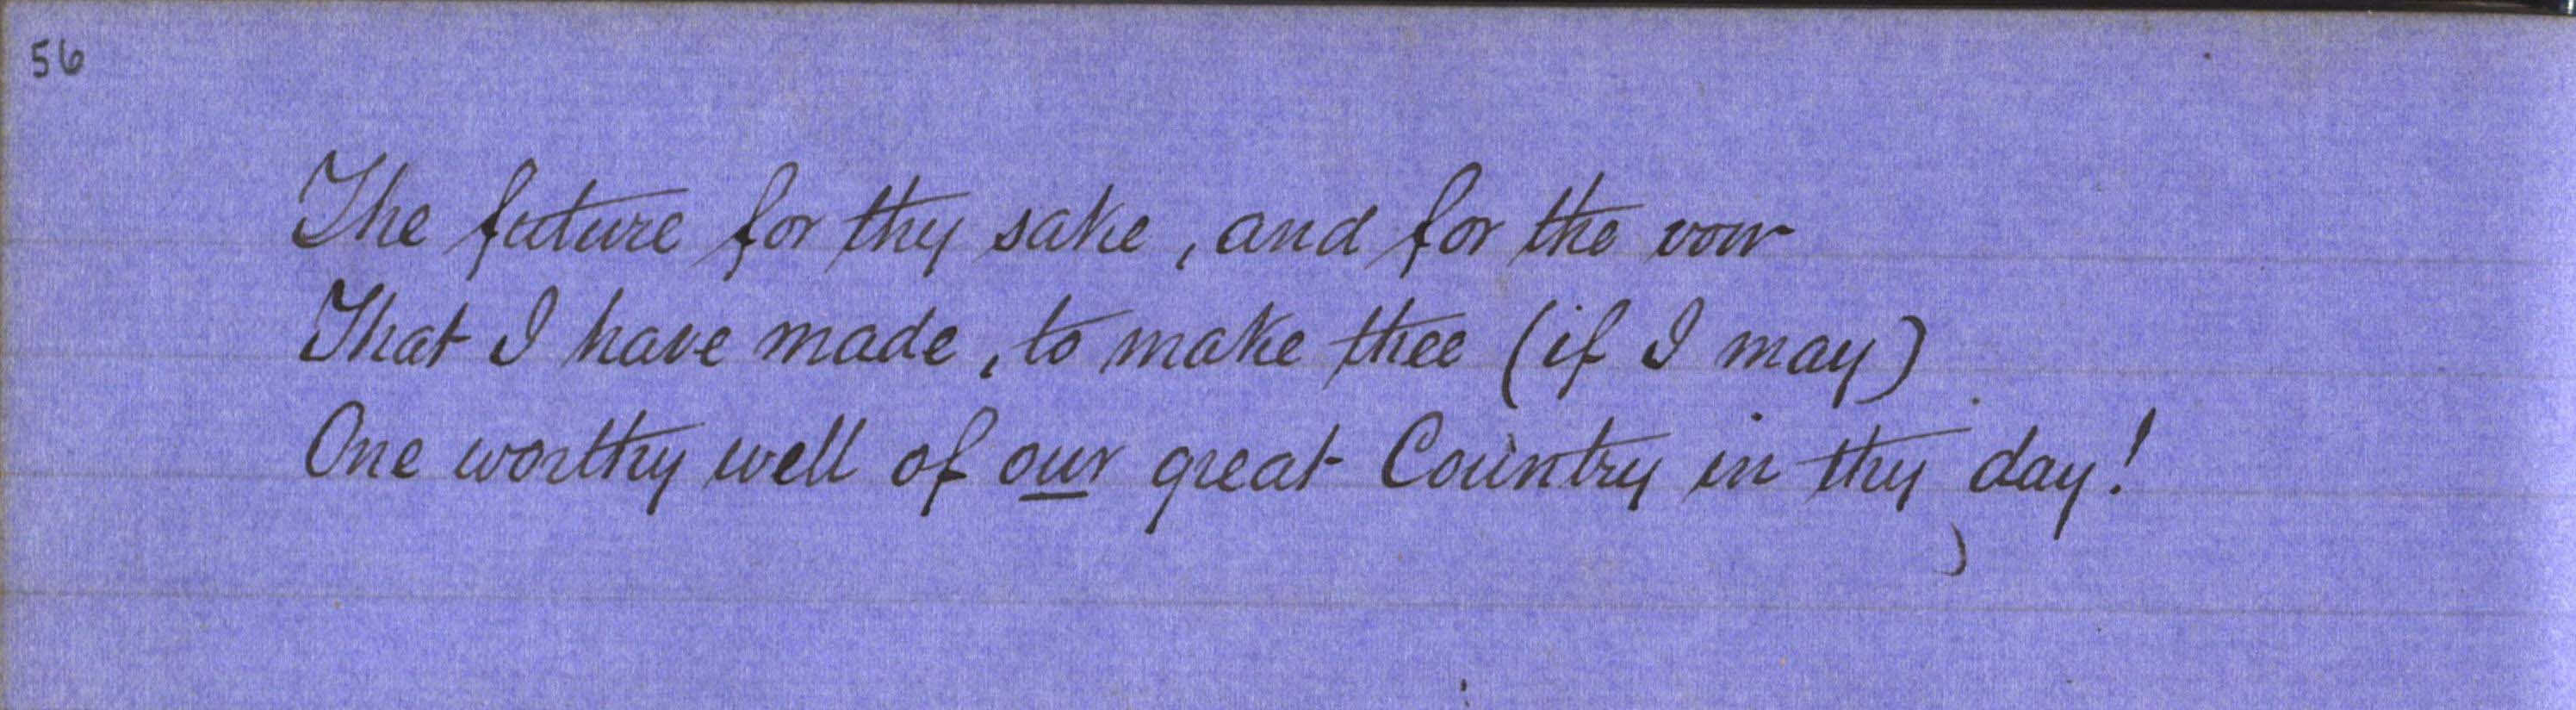 56
The future for thy sake, and for the vow
That I have made, to make thee (if I may)
One worthy well of our great Country in thy day!